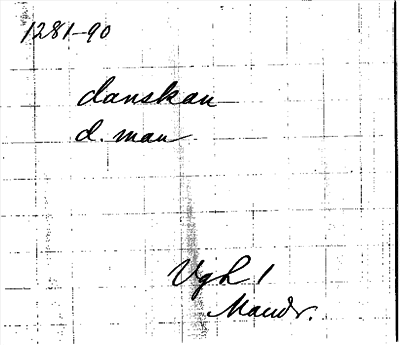 1281-90
danskan
d. man
VgL 1
Mandr.